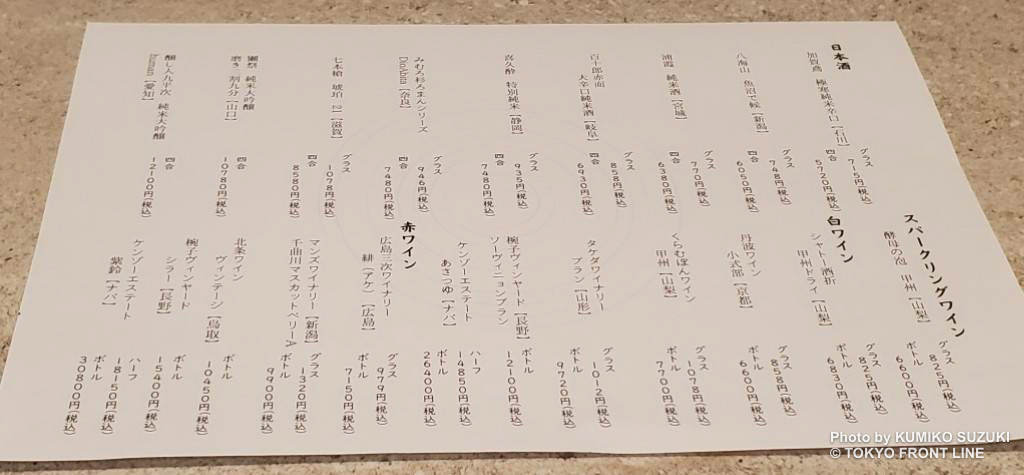 日本酒
加賀鳶 極寒純米辛口【石川】
グラス 715円(税込)
四合 5720円(税込)
八海山 魚沼で候【新潟】
グラス 748円(税込)
四合 6050円(税込)
浦霞 純米酒【宮城】
グラス 770円(税込)
四合 6380円(税込)
百十郎赤面
大辛口純米酒【岐阜】
グラス 858円(税込)
四合 6930円(税込)
喜久酔 特別純米【静岡】
グラス 935円(税込)
四合 7480円(税込)
みむろ杉ろまんシリーズ
Dio Abita【奈良】
グラス 946円(税込)
四合 7480円(税込)
七本槍 琥刂【滋賀】
グラス 1078円(税込)
四合 8580円(税込)
獺祭 純米大吟醸
磨き三割九分【山口】
四合 10780円(税込)
醸し人九平次 純米大吟醸
human【愛知】
四合 12100円(税込)
スパークリングワイン
酵母の泡 甲州【山梨】
グラス 825円(税込)
ボトル 6600円(税込)
白ワイン
シャトー酒折
甲州ドライ【山梨】
グラス 825円(税込)
ボトル 6830円(税込)
丹波ワイン
小式部【京都】
グラス 858円(税込)
ボトル 6600円(税込)
くらむぼんワイン
甲州【山梨】
グラス 1078円(税込)
ボトル 7700円(税込)
タケダワイナリー
ブラン【山形】
グラス 1012円(税込)
ボトル 9720円(税込)
椀子ヴィンヤード【長野】
ソーヴィニョンブラン
ボトル 12100円(税込)
ケンゾーエステート
あさつゆ【ナパ】
ハーフ 14850円(税込)
ボトル 26400円(税込)
赤ワイン
広島三次ワイナリー
緋(アケ)【広島】
グラス 979円(税込)
ボトル 7150円(税込)
マンズワイナリー【新潟】
千曲川マスカットベリーA
グラス 1320円(税込)
ボトル 9900円(税込)
北条ワイン
ヴィンテージ【鳥取】
ボトル 10450円(税込)
椀子ヴィンヤード
シラー【長野】
ボトル 15400円(税込)
ケンゾーエステート
紫鈴【ナパ】
ハーフ 18150円(税込)
ボトル 30800円(税込)
Photo by KUMIKO SUZUKI
© TOKYO FRONT LINE